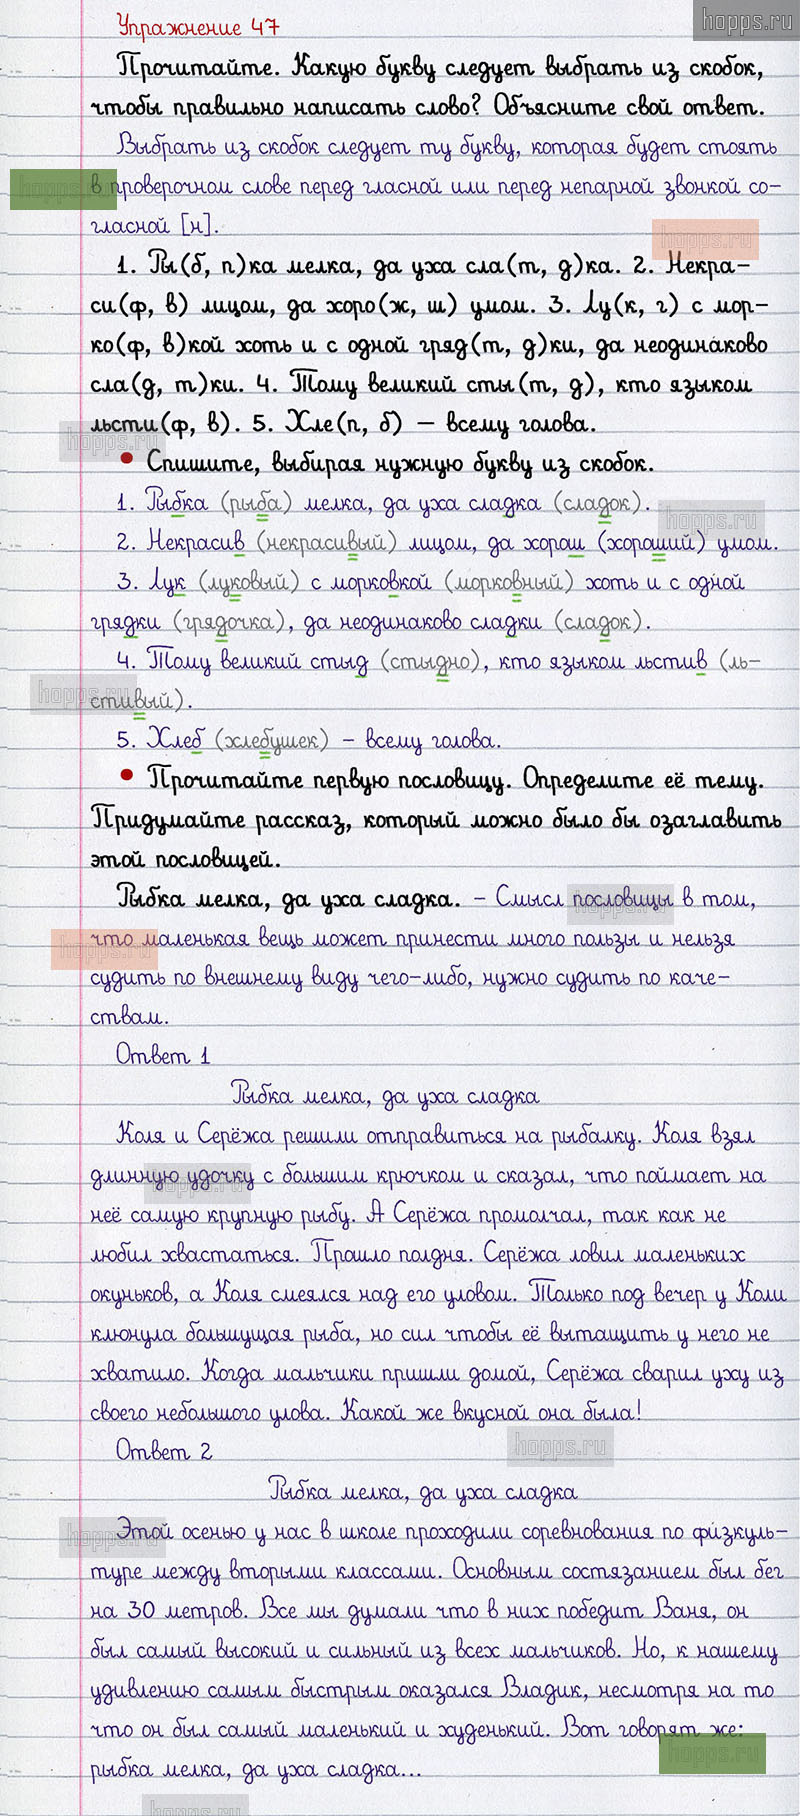 hopps.ru
Упражнение 47
Прочитайте. Какую букву следует выбрать из скобок,
чтобы правильно написать слово? Объясните свой ответ.
Выбрать из скобок следует ту букву, которая будет стоять
в проверочном слове перед гласной или перед непарной звонкой со-
гласной [н].
1. Ры(б, п)ка мелка, да уха сла(т, д)ка. 2. Некра-
си(ф, в) лицом, да хоро(ж, ш) умом. 3. Лу(к, г) с мор-
ко(ф, в)кой хоть и с одной гряд(т, д)ки, да неодина́ково
сла(д, т)ки. 4. Тому великий сты(т, д), кто языком
льсти(ф, в). 5. Хле(п, б) – всему голова.
• Спишите, выбирая нужную букву из скобок.
1. Рыбка (рыба) мелка, да уха сладка (сладок).
2. Некрасив (некрасивый) лицом, да хорош (хороший) умом.
3. Лук (луковый) с морковкой (морковный) хоть и с одной
грядки (грядочка), да неодинаково сладки (сладок).
4. Тому великий стыд (стыдно), кто языком льстив (ль-
стивый).
5. Хлеб (хлебушек) – всему голова.
• Прочитайте первую пословицу. Определите её тему.
Придумайте рассказ, который можно было бы озаглавить
этой пословицей.
Рыбка мелка, да уха сладка. – Смысл пословицы в том,
что маленькая вещь может принести много пользы и нельзя
судить по внешнему виду чего-либо, нужно судить по каче-
ствам.
Ответ 1
Рыбка мелка, да уха сладка
Коля и Серёжа решили отправиться на рыбалку. Коля взял
длинную удочку с большим крючком и сказал, что поймает на
неё самую крупную рыбу. А Серёжа промолчал, так как не
любил хвастаться. Прошло полдня. Серёжа ловил маленьких
окуньков, а Коля смеялся над его уловом. Только под вечер у Коли
клюнула большущая рыба, но сил чтобы её вытащить у него не
хватило. Когда мальчики пришли домой, Серёжа сварил уху из
своего небольшого улова. Какой же вкусной она была!
Ответ 2
Рыбка мелка, да уха сладка
Этой осенью у нас в школе проходили соревнования по физкуль-
туре между вторыми классами. Основным состязанием был бег
на 30 метров. Все мы думали что в них победит Ваня, он
был самый высокий и сильный из всех мальчиков. Но, к нашему
удивлению самым быстрым оказался Владик, несмотря на то
что он был самый маленький и худенький. Вот говорят же:
рыбка мелка, да уха сладка...